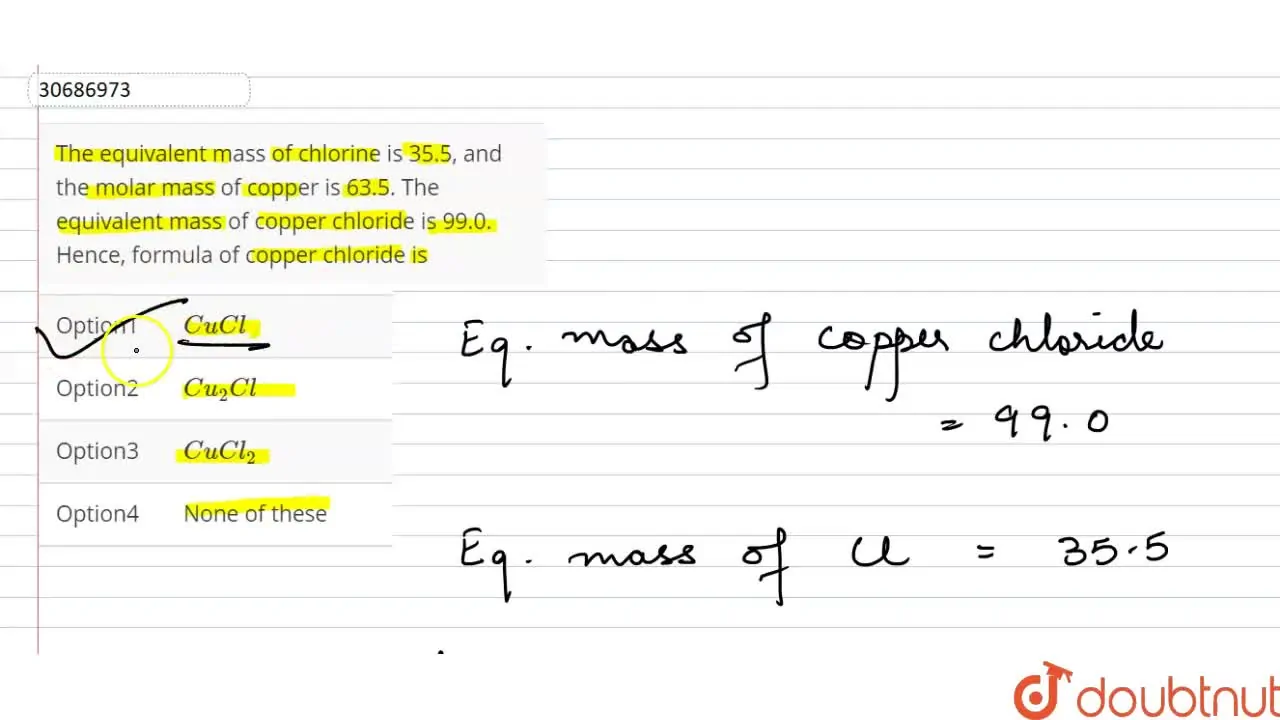 30686973
The equivalent mass of chlorine is 35.5, and
the molar mass of copper is 63.5. The
equivalent mass of copper chloride is 99.0.
Hence, formula of copper chloride is
Option1 CuCl
Option2 Cu₂Cl
Option3 CuCl₂
Option4 None of these
Eq. mass of copper chloride
= 99.0
Eq. mass of Cl = 35.5
doubtnut